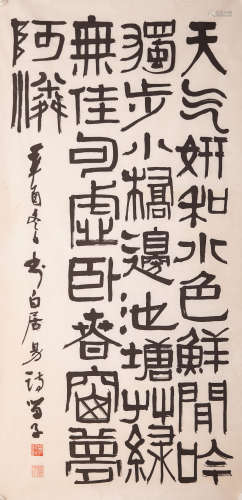 天气妍和水色鮮閒吟
獨步小橋邊池塘草綠
無佳句虛臥春窗夢
阿憐
辛酉冬書白居易詩